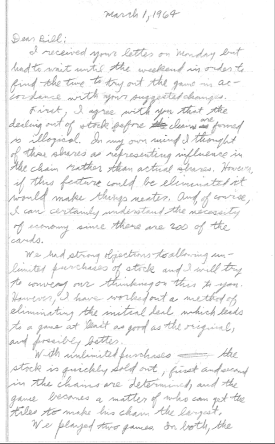 March 1, 1964
Dear Bill:
I received your letter on Monday but
had to wait until the weekend in order to
find the time to try out the game in ac-
cordance with your suggested changes.
First, I agree with you that the
dealing out of stock before chains are formed
is illogical. In my own mind I thought
of these shares as representing influence in
the chain rather than actual shares. However,
if this feature could be eliminated it
would make things neater. And of course,
I can certainly understand the necessity
of economy since there are 200 of the
cards.
We had strong objections to allowing un-
limited purchases of stock and I will try
to convey our thinking on this to you.
However, I have worked out a method of
eliminating the initial deal which leads
to a game at least as good as the original,
and possibly better.
With unlimited purchases the
stock is quickly sold out, first and second
in the chains are determined, and the
game becomes a matter of who can get the
tiles to make his chain the largest.
We played two games. In both, the